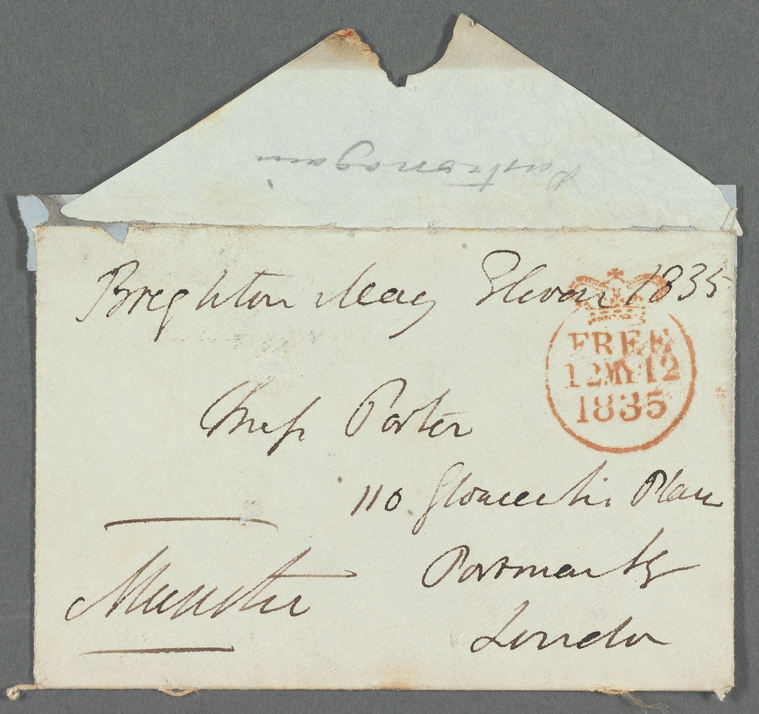 Brighton May Eleven 1835
FREE
12 MY 12
1835
Miss Porter
110 Gloucester Place
Portman Sq
London
Munster